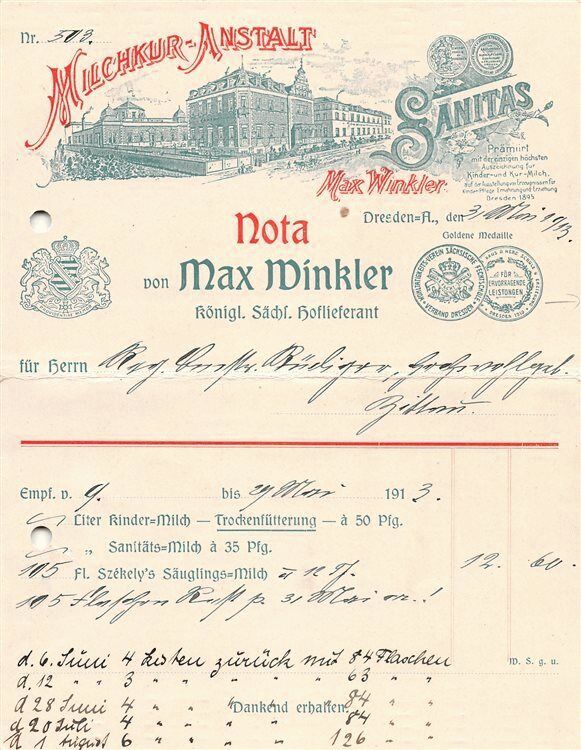 Nr. 503.
MILCHKUR-ANSTALT
SANITAS
Prämiirt
mit der einzigen höchsten
Auszeichnung für
Kinder- und Kur-Milch,
Dresden 1895
Max Winkler
Dresden-A., den 31 Mai 1913
Goldene Medaille
Nota
von Max Winkler
Königl. Sächs. Hoflieferant
VERBAND DRESDEN
FÜR
HERVORRAGENDE
LEISTUNGEN
für Herrn Reg. Rüdiger,
Zittau.
Empf. v. 9. bis 29 Mai 1913.
Liter Kinder=Milch — Trockenfütterung — à 50 Pfg.
„ Sanitäts=Milch à 35 Pfg.
105 Fl. Székely's Säuglings=Milch à 12 Pf. 12. 60.
105 Flaschen Rest p. 31 Mai cr.!
d. 6. Juni 4 Kisten zurück mit 84 Flaschen
W. S. g. u.
d. 12 " " 3 " " " 63 " "
d 28 Juni 4 " " " 84 " "
Dankend erhalten.
d 20 Juli 4 " " " 84 " "
d 1 August 6 " " " 126 " "